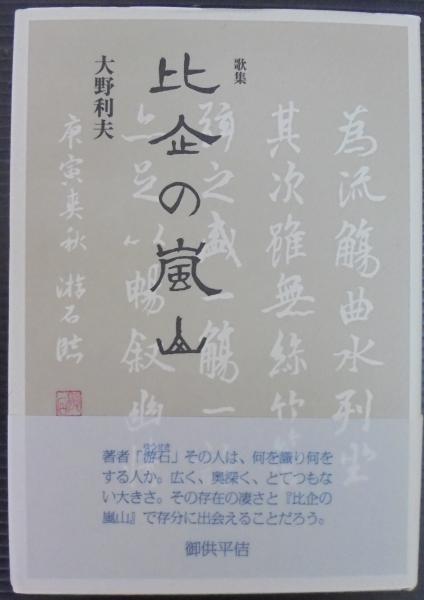 歌集
比企の嵐山
大野利夫
為流觴曲水列坐
其次雖無絲竹管
弦之盛一觴一詠
亦足以暢叙幽情
庚寅春秋 游石臨
著者「游石」その人は、何を識り何を
する人か。広く、奥深く、とてつもな
い大きさ。その存在の凄さと『比企の
嵐山』で存分に出会えることだろう。
御供平佶